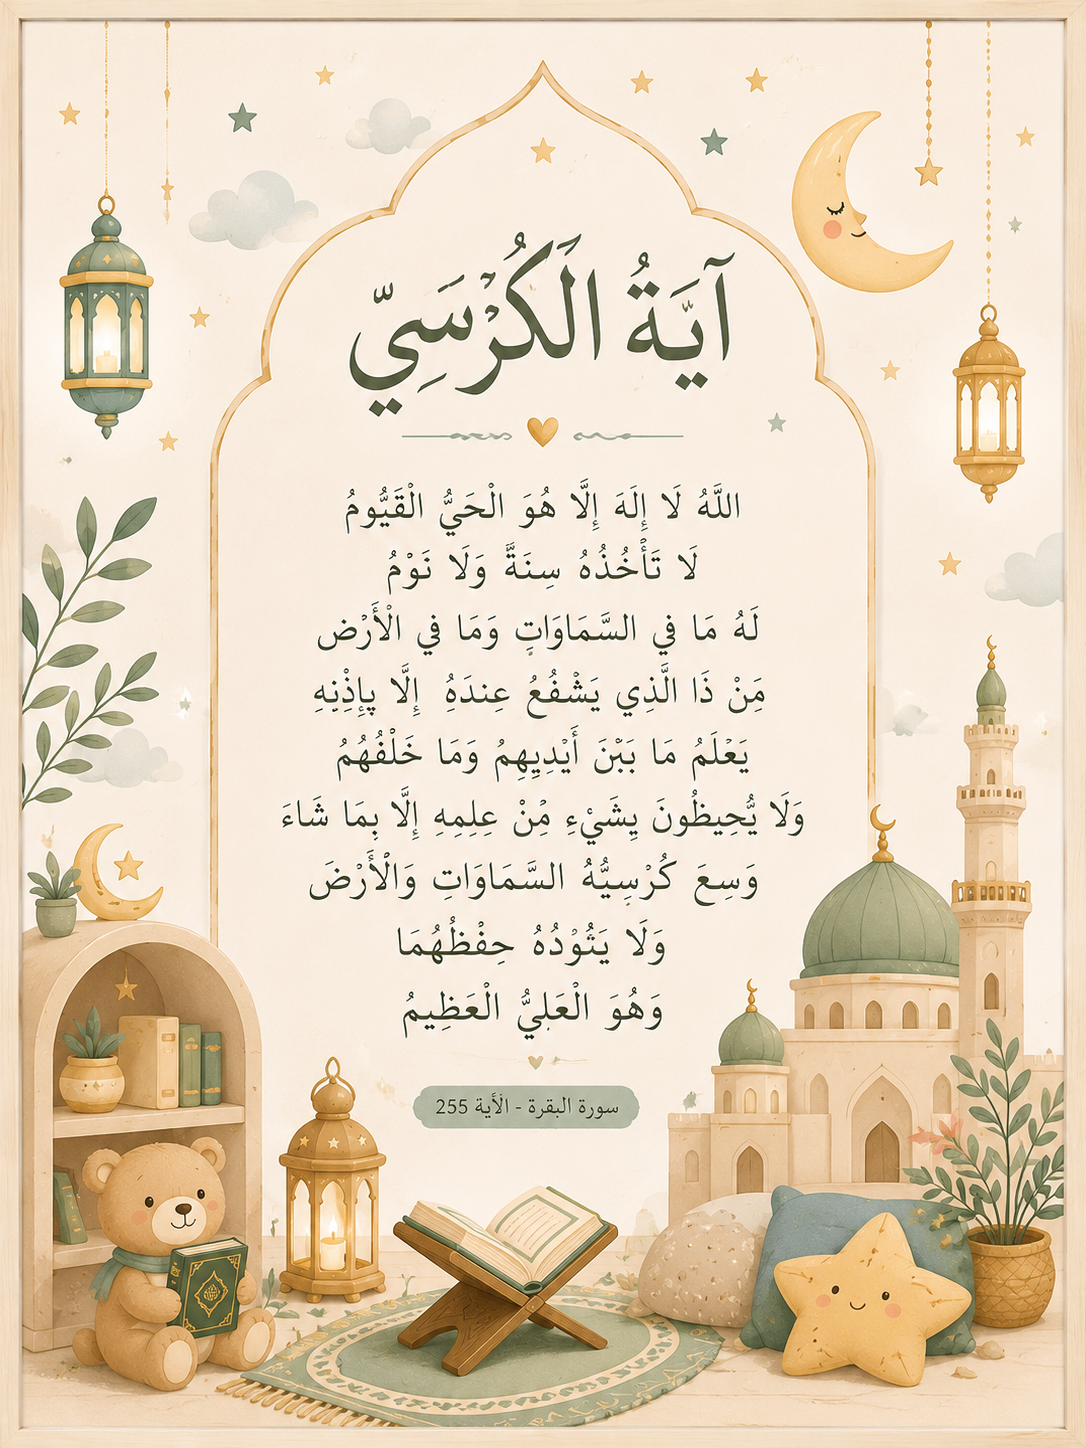 آيَةُ الْكُرْسَيِّ
اللَّهُ لَا إِلَهَ إِلَّا هُوَ الْحَيُّ الْقَيُّومُ
لَا تَأْخُذُهُ سِنَةٌ وَلَا نَوْمُ
لَهُ مَا فِي السَّمَاوَاتِ وَمَا فِي الْأَرْض
مَنْ ذَا الَّذِي يَشْفُعُ عِندَهُ إِلَّا بِإِذْنِهِ
يَعْلَمُ مَا بَيْنَ أَيْدِيهِمُ وَمَا خَلْفُهُمُ
وَلَا يُّحِيظُونَ بِشَيْءٍ مِّنْ عِلِمِهِ إِلَّا بِمَا شَاءَ
وَسِعَ كُرْسِيُّهُ السَّمَاوَاتِ وَالْأَرْضَ
وَلَا يَئُوْدُهُ حِفْظُهُمَا
وَهُوَ الْعَلِيُّ الْعَظِيمُ
سورة البقرة - الآية 255